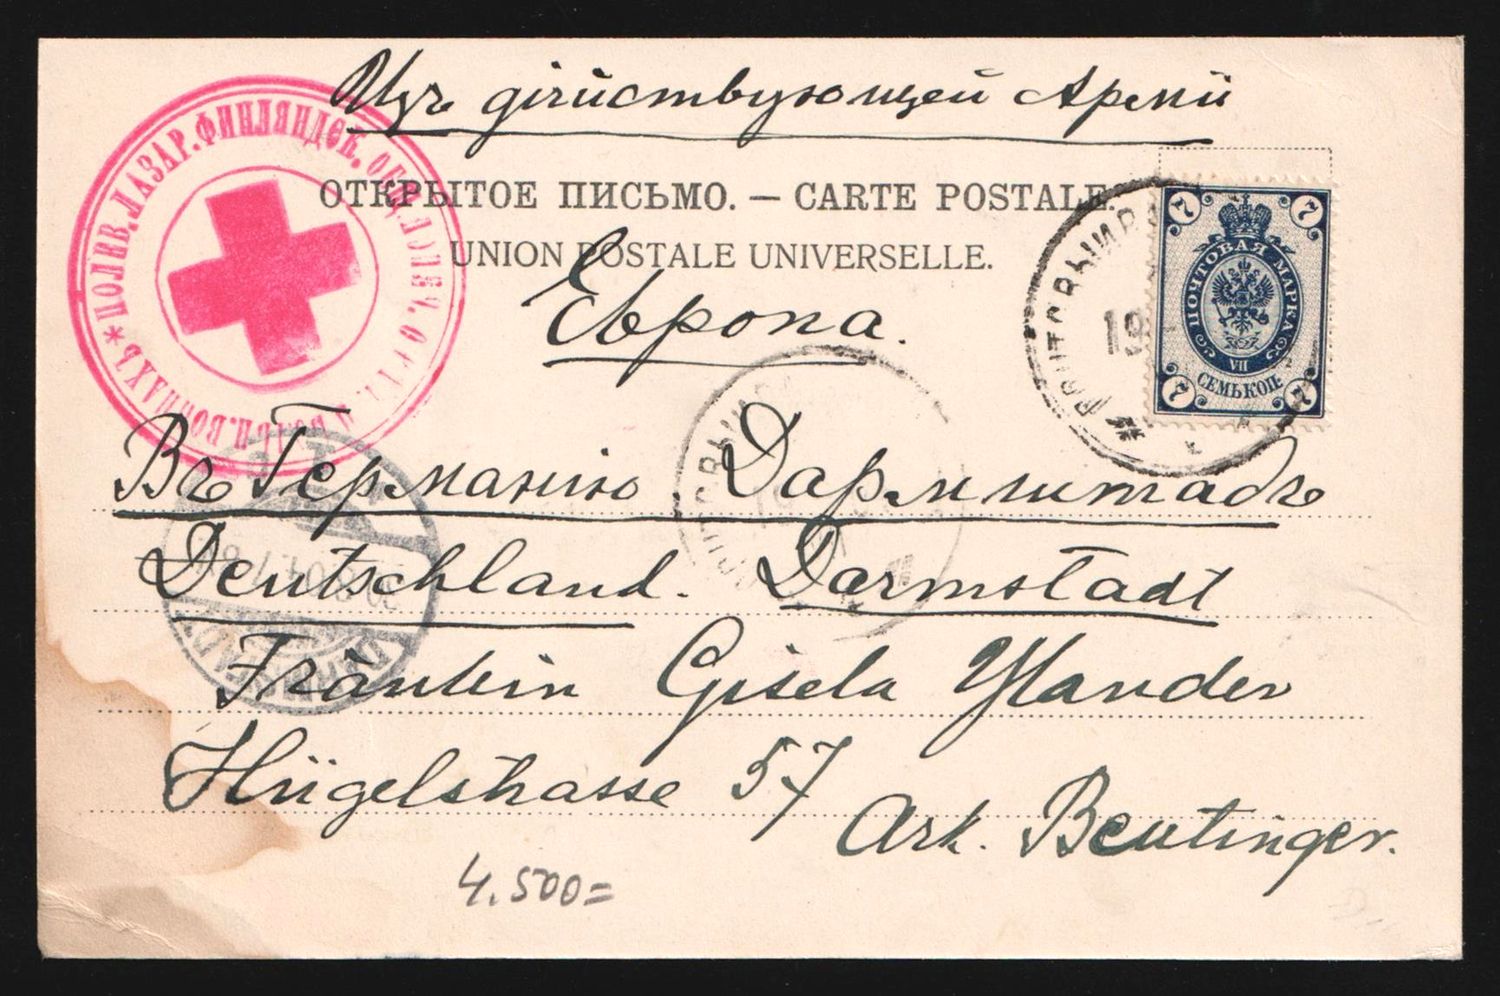 Изъ дѣйствующей Арміи
ОТКРЫТОЕ ПИСЬМО. — CARTE POSTALE.
UNION POSTALE UNIVERSELLE.
Европа.
Въ Германію. Дармштадъ
Deutschland. Darmstadt
Fräulein Gisela
Hügelstrasse 57
Ark. Beutinger.
4.500=
ПОЛЕВ. ЛАЗАР. ФИНЛЯНДСК. ОБЩ.
7 7
ПОЧТОВАЯ МАРКА
VII
СЕМЬ КОП.
7 7
DARMSTADT